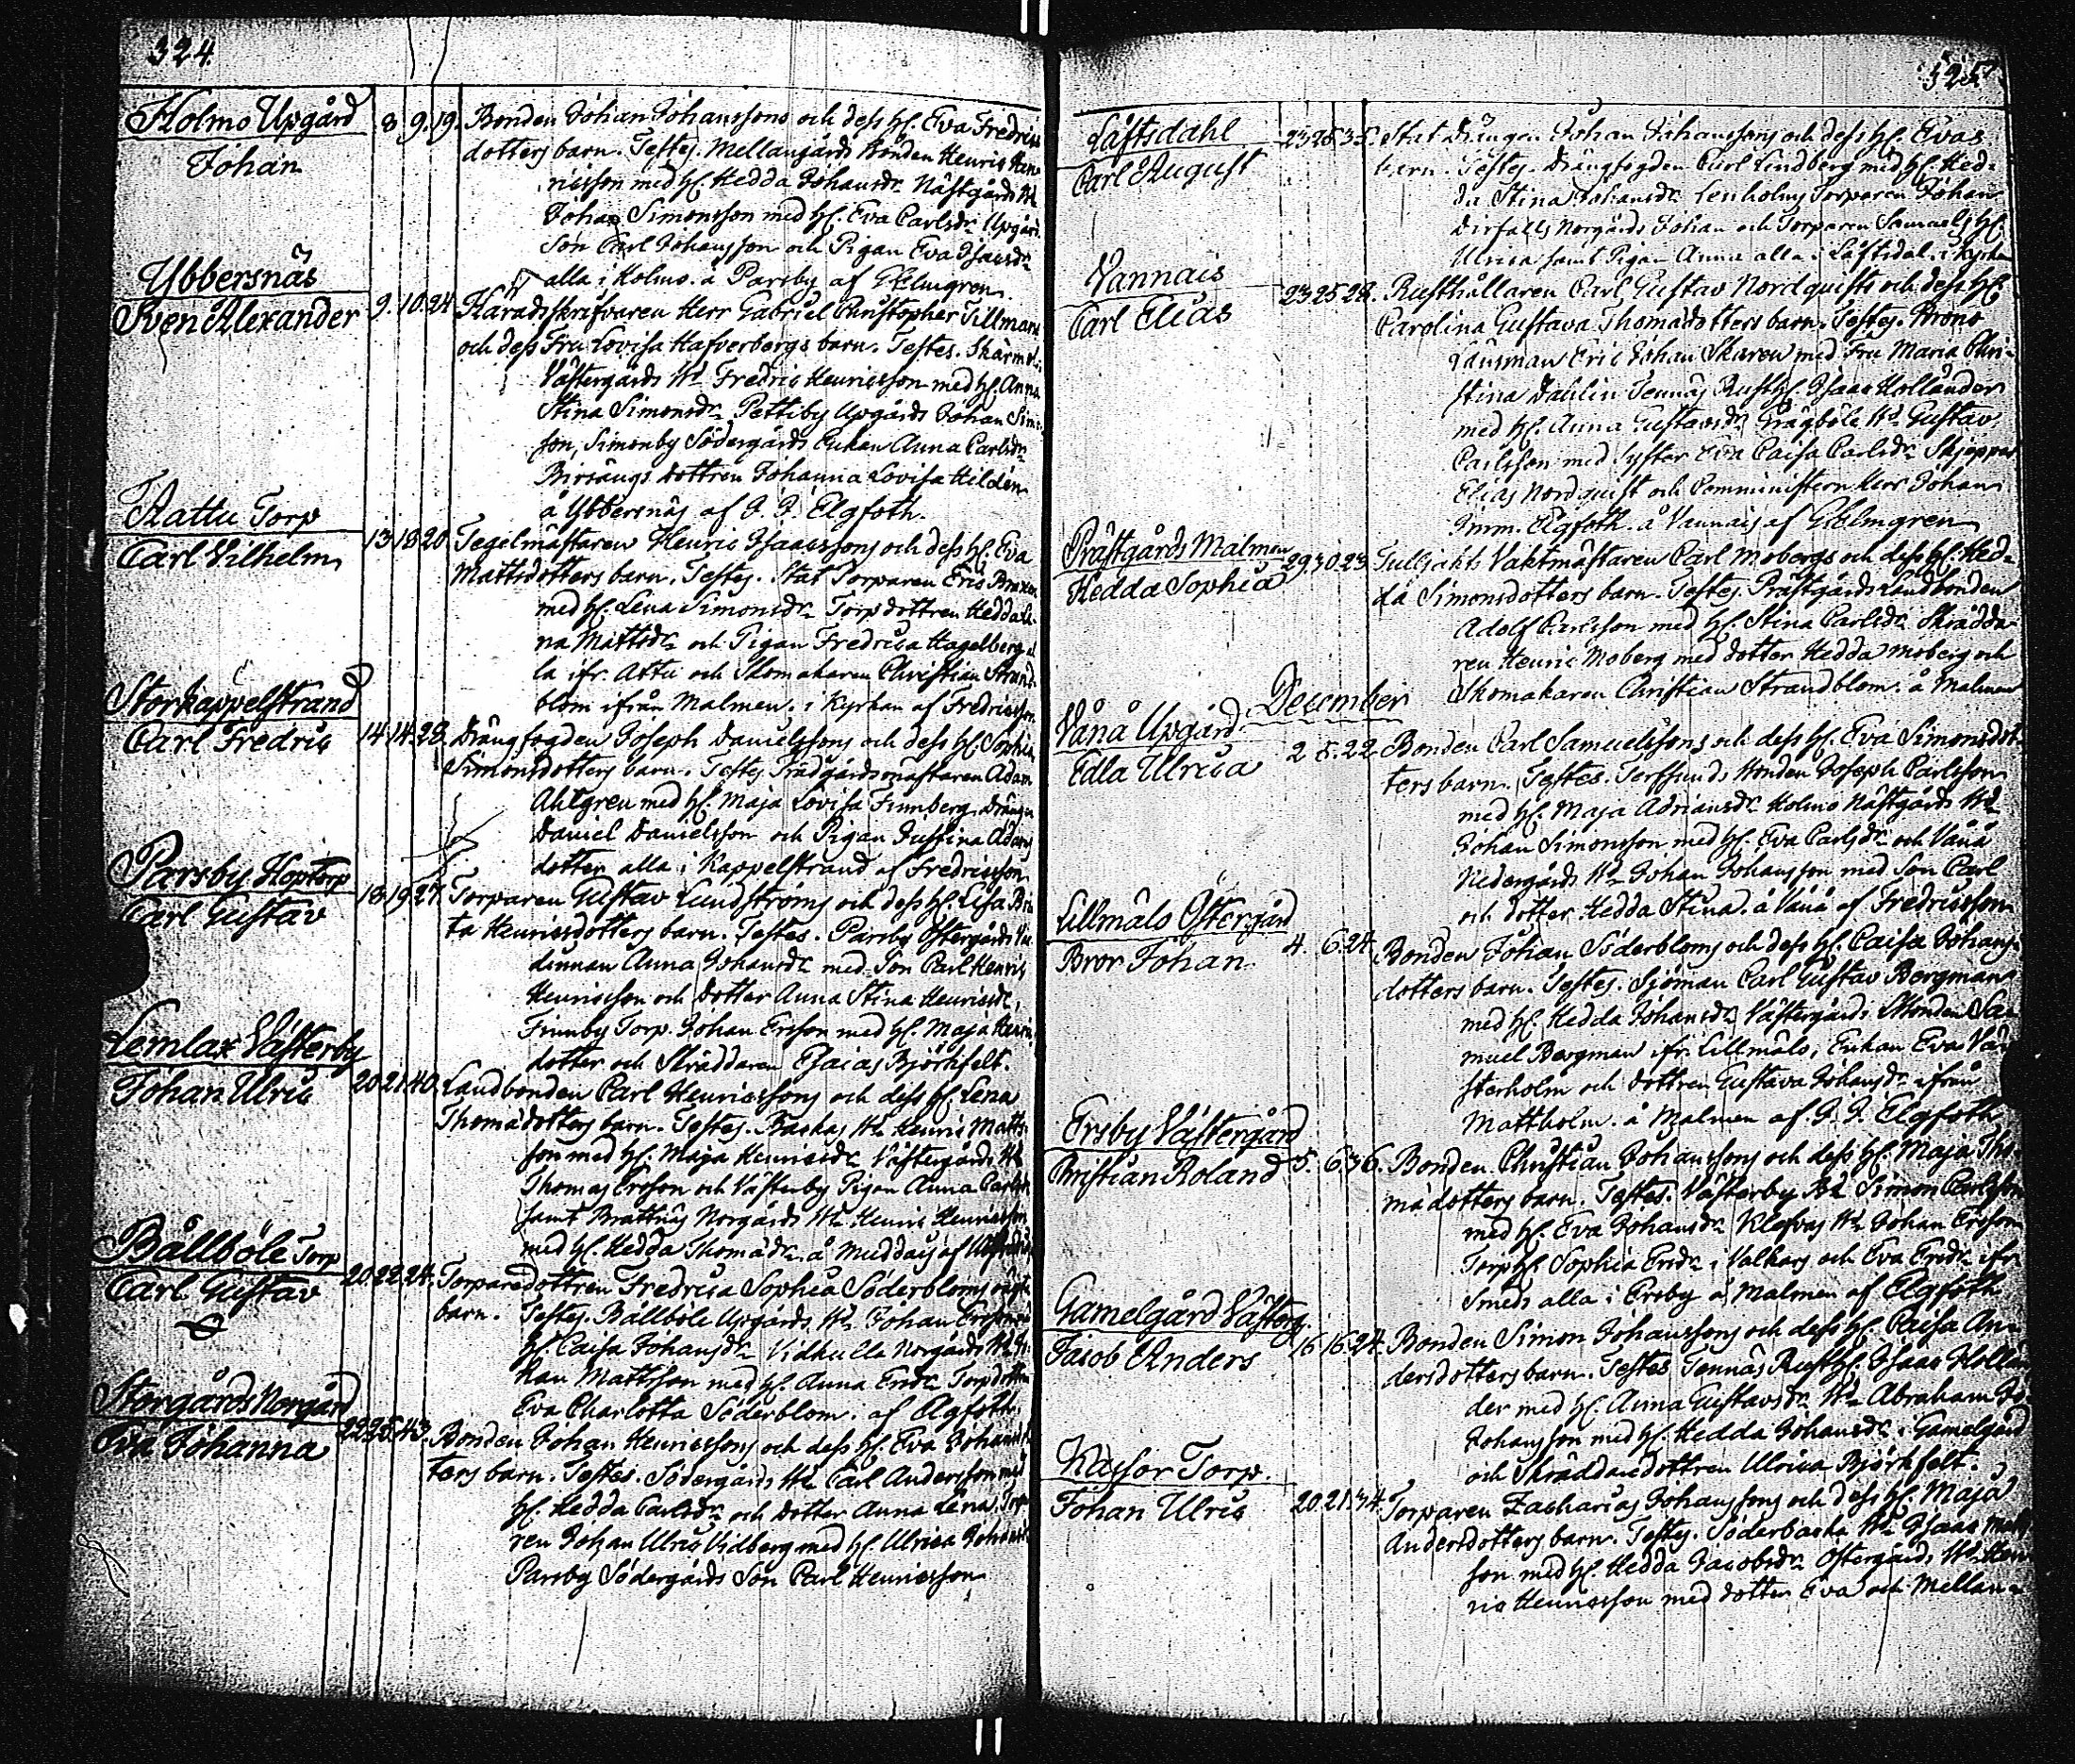 324.
Holmo Upgård 8 9. 19. Bonden Johan Johanssons och dess H. Eva Fredrics
Johan dotters barn. Testes. Mellangårds Bonden Henric Hen-
ricsson med H. Hedda Johansdr Nästgårds Bd
Johan Simonsson med H. Eva Carlsdr Upgårds
Son Carl Johansson och Pigan Eva Isacsdr
alla i Holmo. å Parsby af G Elmgren.
Ybbersnäs
Sven Alexander 9. 10. 24. Häradsskrifvaren Herr Gabriel Christopher Tillmans
och dess Fru Lovisa Hafverbergs barn. Testes. Skärmola
Västergårds Bd Fredric Henricsson med H. Anna
Stina Simonsdr Pettiby Upgårds Johan Simons
son, Simonby Södergårds Enkan Anna Carlsdr
Birsängs Dottren Johanna Lovisa Heldén
å Ybbersnäs af J. I. Elgfoth.
Attu Torp
Carl Vilhelm 13 18 20 Tegelmästaren Henric Isaacssons och dess H. Eva
Mattsdotters barn. Testes. Stat Torparen Eric Braxen
med H. Lena Simonsdr Torpdottren Hedda Le-
na Mattsdr och Pigan Fredrica Hagelberg al
la ifr. Attu och Skomakaren Christian Strand-
blom ifrån Malmen. i Kyrkan af Fredricsson.
Storkappelstrand
Carl Fredric 14 14. 28. Drängfogden Joseph Danielssons och dess H. Sophia
Simonsdotters barn. Testes. Trädgårdsmästaren Adam
Ahlgren med H. Maja Lovisa Finnberg. Drängen
Daniel Danielsson och Pigan Justina Adams
dotter alla i Kappelstrand af Fredricsson
Parsby Hoptorp
Carl Gustav 18 19. 27. Torparen Gustav Lundströms och dess H. Lisa Bri
ta Henricsdotters barn. Testes. Parsby Östergårds Vär
dinnan Anna Johansdr med Son Carl Henric
Henricsson och Dotter Anna Stina Henricsdr,
Finnby Torp. Johan Ersson med H. Maja Henrics
dotter och Skräddaren Esaias Björkfelt.
Lemlax Västerby
Johan Ulric 20 21. 40. Landbonden Carl Henricssons och dess H. Lena
Thomasdotters barn. Testes. Baskas Bd Henric Matts-
son med H. Maja Henricsdr Västergårds Bd
Thomas Ersson och Västerby Pigan Anna Carlsdr
samt Brattnäs Norgårds Bd Henric Henricsson
med H. Hedda Thomasdr å Muddais af
Bållböle Torp
Carl Gustav 20 22 24. Torparedottren Fredrica Sophia Söderbloms oägta
barn. Testes. Bållböle Upgårds Bd Johan Ersson med
H. Caisa Johansdr Vidkulla Norgårds Bd Jo-
han Mattsson med H. Anna Ersdr Torpdottren
Eva Charlotta Söderblom. af Elgfoth.
Storgårds Norgård
Eva Johanna 22 25. 43. Bonden Johan Henricssons och dess H. Eva Johansdot
ters barn. Testes. Södergårds Bd Carl Andersson med
H. Hedda Carlsdr och Dotter Anna Lena, Torpa-
ren Johan Ulric Vidberg med H. Ulrica Johansdr
Parsby Södergårds Son Carl Henricsson
325
Låftsdahl
Carl August 23 25 35. Stat Drängen Johan Johanssons och dess H. Evas
barn. Testes. Drängfogden Carl Lindberg med H. Hed-
da Stina Johansdr Lenholms Torparen Johan
Norgårds Johan och Torparen Samuels H.
Ulrica samt Pigan Anna alla i Låftsdal. i Kyrkan
Vannais
Carl Elias 23 25 28. Rusthållaren Carl Gustav Nordquists och dess H.
Carolina Gustava Thomasdotters barn. Testes. Krono
Länsman Eric Johan Skaren med Fru Maria Chri-
stina Dahlin Tennäs Rusth. Isaac Hollander
med H. Anna Gustavsdr Gräggböle Bd Gustav
Carlsson med Syster Eva Caisa Carlsdr Skjeppar
Elias Nordquist och Comministern Herr Johan
Imm. Elgfoth. å Vannais af G. Elmgren
Prästgårds Malmen
Hedda Sophia 29 30. 23 Tulljakts Vaktmästaren Carl Mobergs och dess H. Hed-
da Simonsdotters barn. Testes. Prästgårds Landbonden
Adolf Carlsson med H. Stina Carlsdr Skrädda-
ren Henric Moberg med dotter Hedda Moberg och
Skomakaren Christian Strandblom. å Malmen
December
Vånå Upgård
Edla Ulrica 2 5. 22 Bonden Carl Samuelssons och dess H. Eva Simonsdot-
ters barn. Testes. Terssunds Bonden Joseph Carlsson
med H. Maja Adriansdr Holmo Nästgårds Bd
Johan Simonsson med H. Eva Carlsdr och Vånå
Nedergårds Bd Johan Johansson med Son Carl
och dotter Hedda Stina. å Vånå af Fredricsson
Lillmälo Östergård
Bror Johan 4. 6. 24. Bonden Johan Söderbloms och dess H. Caisa Johans-
dotters barn. Testes. Sjöman Carl Gustav Bergman
med H. Hedda Johansdr Västergårds Bonden Sa-
muel Bergman ifr. Lillmälo, Enkan Eva Vän-
sterholm och Dottren Gustava Johansdr ifrån
Mattholm. å Malmen af J. I. Elgfoth
Ersby Västergård
Christian Roland 5. 6. 36. Bonden Christian Johanssons och dess H. Maja Tho-
masdotters barn. Testes. Västerby Bd Simon Carlsson
med H. Eva Johansdr Klefvas Bd Johan Ersson
Torp H. Sophia Ersdr i Valkars och Eva Ersdr ifr.
Smeds alla i Ersby å Malmen af Elgfoth
Gamelgård Västerg.
Jacob Anders 16 16. 24. Bonden Simon Johanssons och dess H. Caisa An-
dersdotters barn. Testes Tennäs Rusth. Isaac Hollän
der med H. Anna Gustavsdr Bd Abraham Jo-
Johansson med H. Hedda Johansdr i Gamelgård
och Skräddaredottren Ulrica Björkfelt.
Kaisor Torp.
Johan Ulric 20. 21. 34. Torparen Zacharias Johanssons och dess H. Maja
Andersdotters barn. Testes. Söderbacka Bd Isaac Mats
son med H. Hedda Jacobsdr Östergårds Bd Hen-
ric Henricsson med Dotter Eva och Mellan-